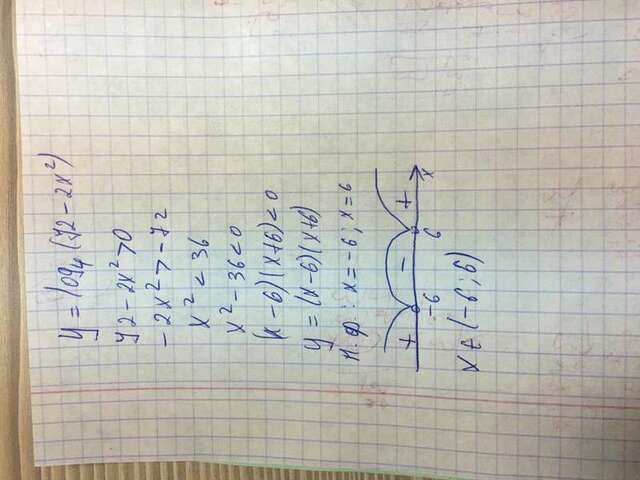 y = log₄(72 - 2x²)
72 - 2x² > 0
-2x² > -72
x² < 36
x² - 36 < 0
(x - 6)(x + 6) < 0
y = (x - 6)(x + 6)
н.ф.: x = -6; x = 6
+ - +
-6 6 x
x ∈ (-6; 6)